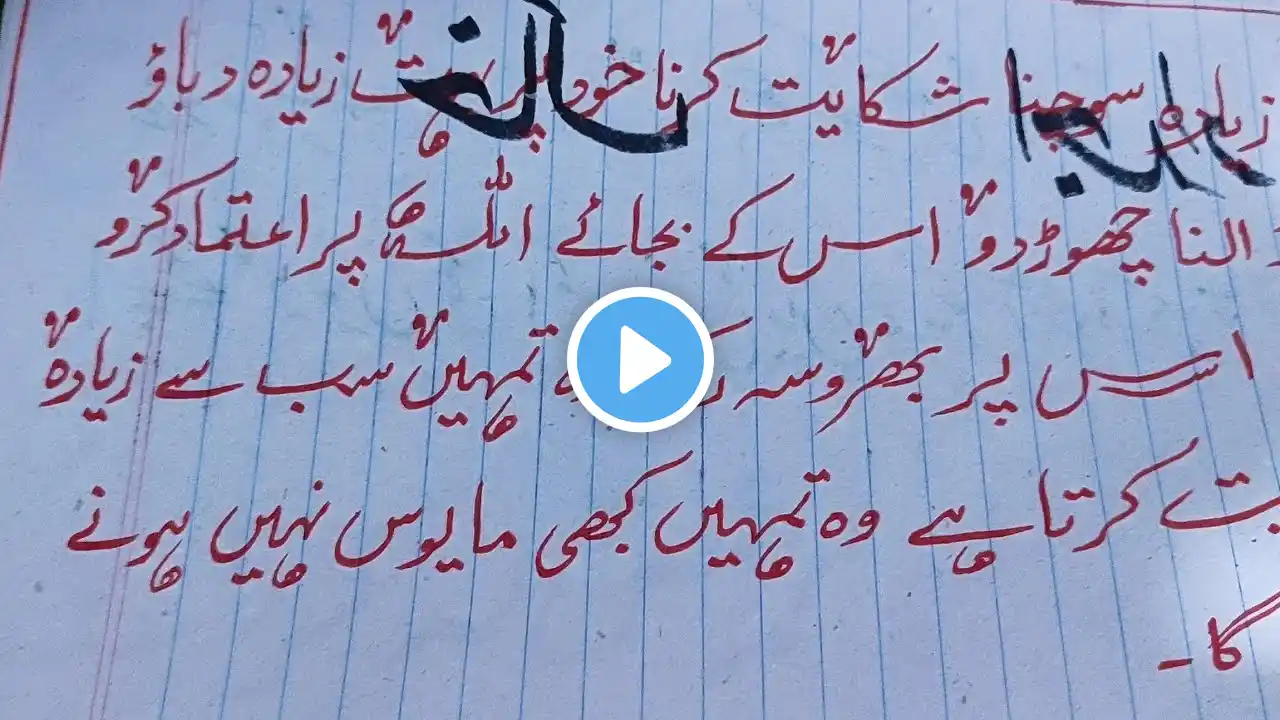 زیادہ سوچنا شکایت کرنا خود پر بہت زیادہ دباؤ
النا چھوڑ دو اس کے بجائے اللہ پر اعتماد کرو
اس پر بھروسہ تمہیں سب سے زیادہ
بت کرتا ہے وہ تمہیں کبھی مایوس نہیں ہونے
گا۔